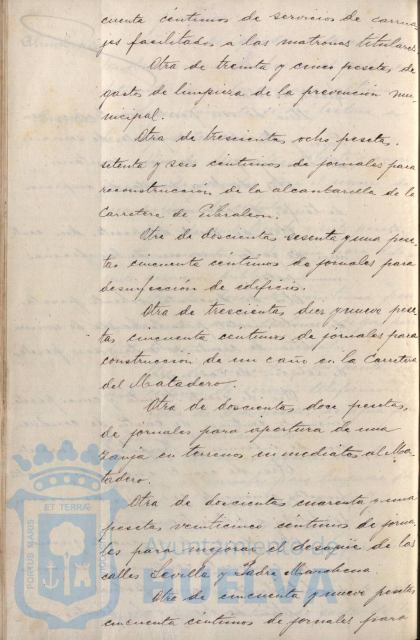 cuenta céntimos de servicios de carrua-
jes facilitados á las matronas titulares
Otra de treinta y cinco pesetas de
gastos de limpieza de la prevención mu-
nicipal.
Otra de trescientas ocho pesetas,
setenta y seis céntimos de jornales para
reconstrucción de la alcantarilla de la
Carretera de Gibraleon.
Otra de doscientas sesenta y una pese-
tas cincuenta céntimos de jornales para
desinfección de edificios.
Otra de trescientas diez y nueve pese-
tas cincuenta céntimos de jornales para
construcción de un caño en la Carretera
del Matadero.
Otra de doscientas doce pesetas,
de jornales para apertura de una
zanja en terrenos inmediatos al Ma-
tadero.
Otra de doscientas cuarenta y una
pesetas veinticinco céntimos de jorna-
les para mejorar el desagüe de las
calles Sevilla y Padre Marchena.
Otra de cincuenta y nueve pesetas
cincuenta céntimos de jornales para
PORTUS MARIS
ET TERRÆ
Ayuntamiento de
HUELVA